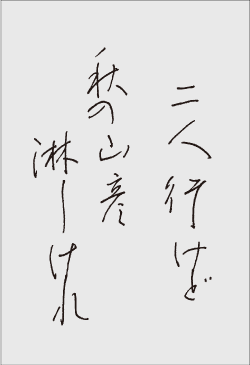 二人行けど
秋の山彦
淋しけれ